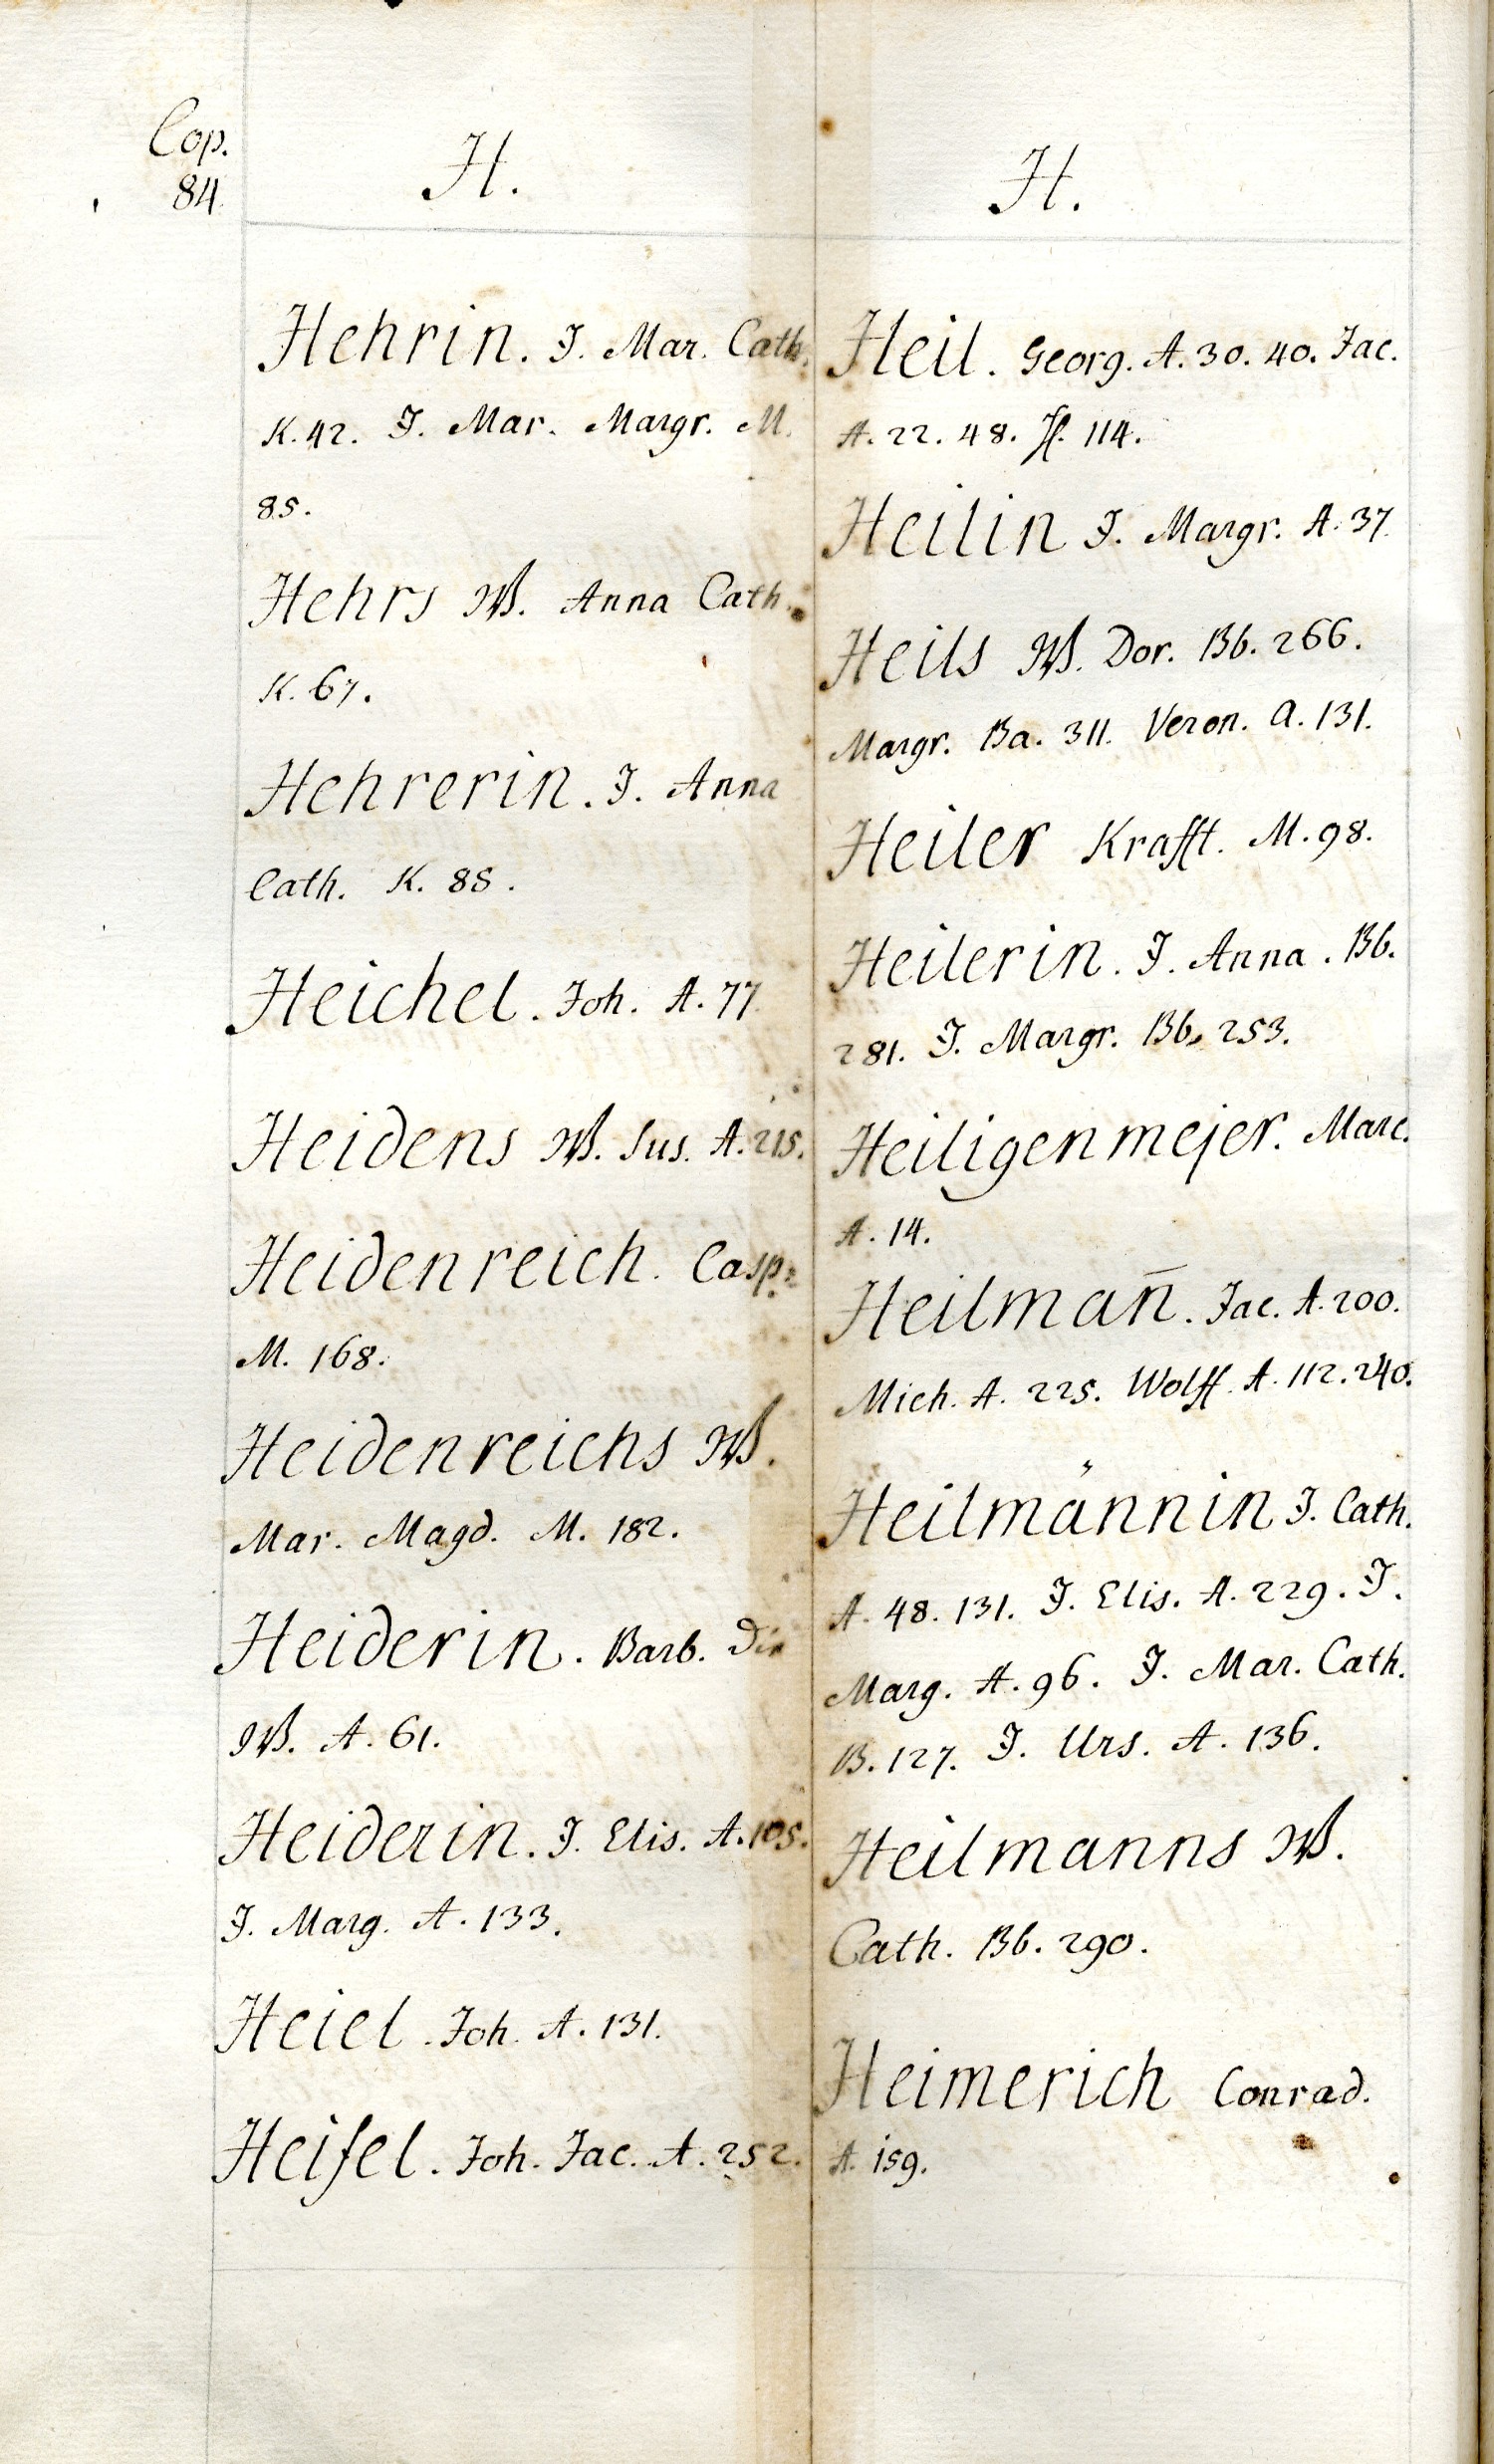 Cop.
84.
H.
Hehrin. J. Mar. Cath.
K. 42. J. Mar. Margr. M.
85.
Hehrs W. Anna Cath.
K. 67.
Hehrerin. J. Anna
Cath. K. 88.
Heichel. Joh. A. 77.
Heidens W. Sus. A. 215.
Heidenreich. Casp.
M. 168.
Heidenreichs W.
Mar. Magd. M. 182.
Heiderin. Barb. Die
W. A. 61.
Heiderin. J. Elis. A. 105.
J. Marg. A. 133.
Heiel. Joh. A. 131.
Heisel. Joh. Jac. A. 252.
H.
Heil. Georg. A. 30. 40. Jac.
A. 22. 48. H. 114.
Heilin J. Margr. A. 37.
Heils W. Dor. Bb. 266.
Margr. Ba. 311. Veron. A. 131.
Heiler Krafft. M. 98.
Heilerin. J. Anna. Bb.
281. J. Margr. Bb. 253.
Heiligenmejer. Marc.
A. 14.
Heilman̄. Jac. A. 200.
Mich. A. 225. Wolff. A. 112. 240.
Heilmännin J. Cath.
A. 48. 131. J. Elis. A. 229. J.
Marg. A. 96. J. Mar. Cath.
B. 127. J. Urs. A. 136.
Heilmanns W.
Cath. Bb. 290.
Heimerich Conrad.
A. 159.